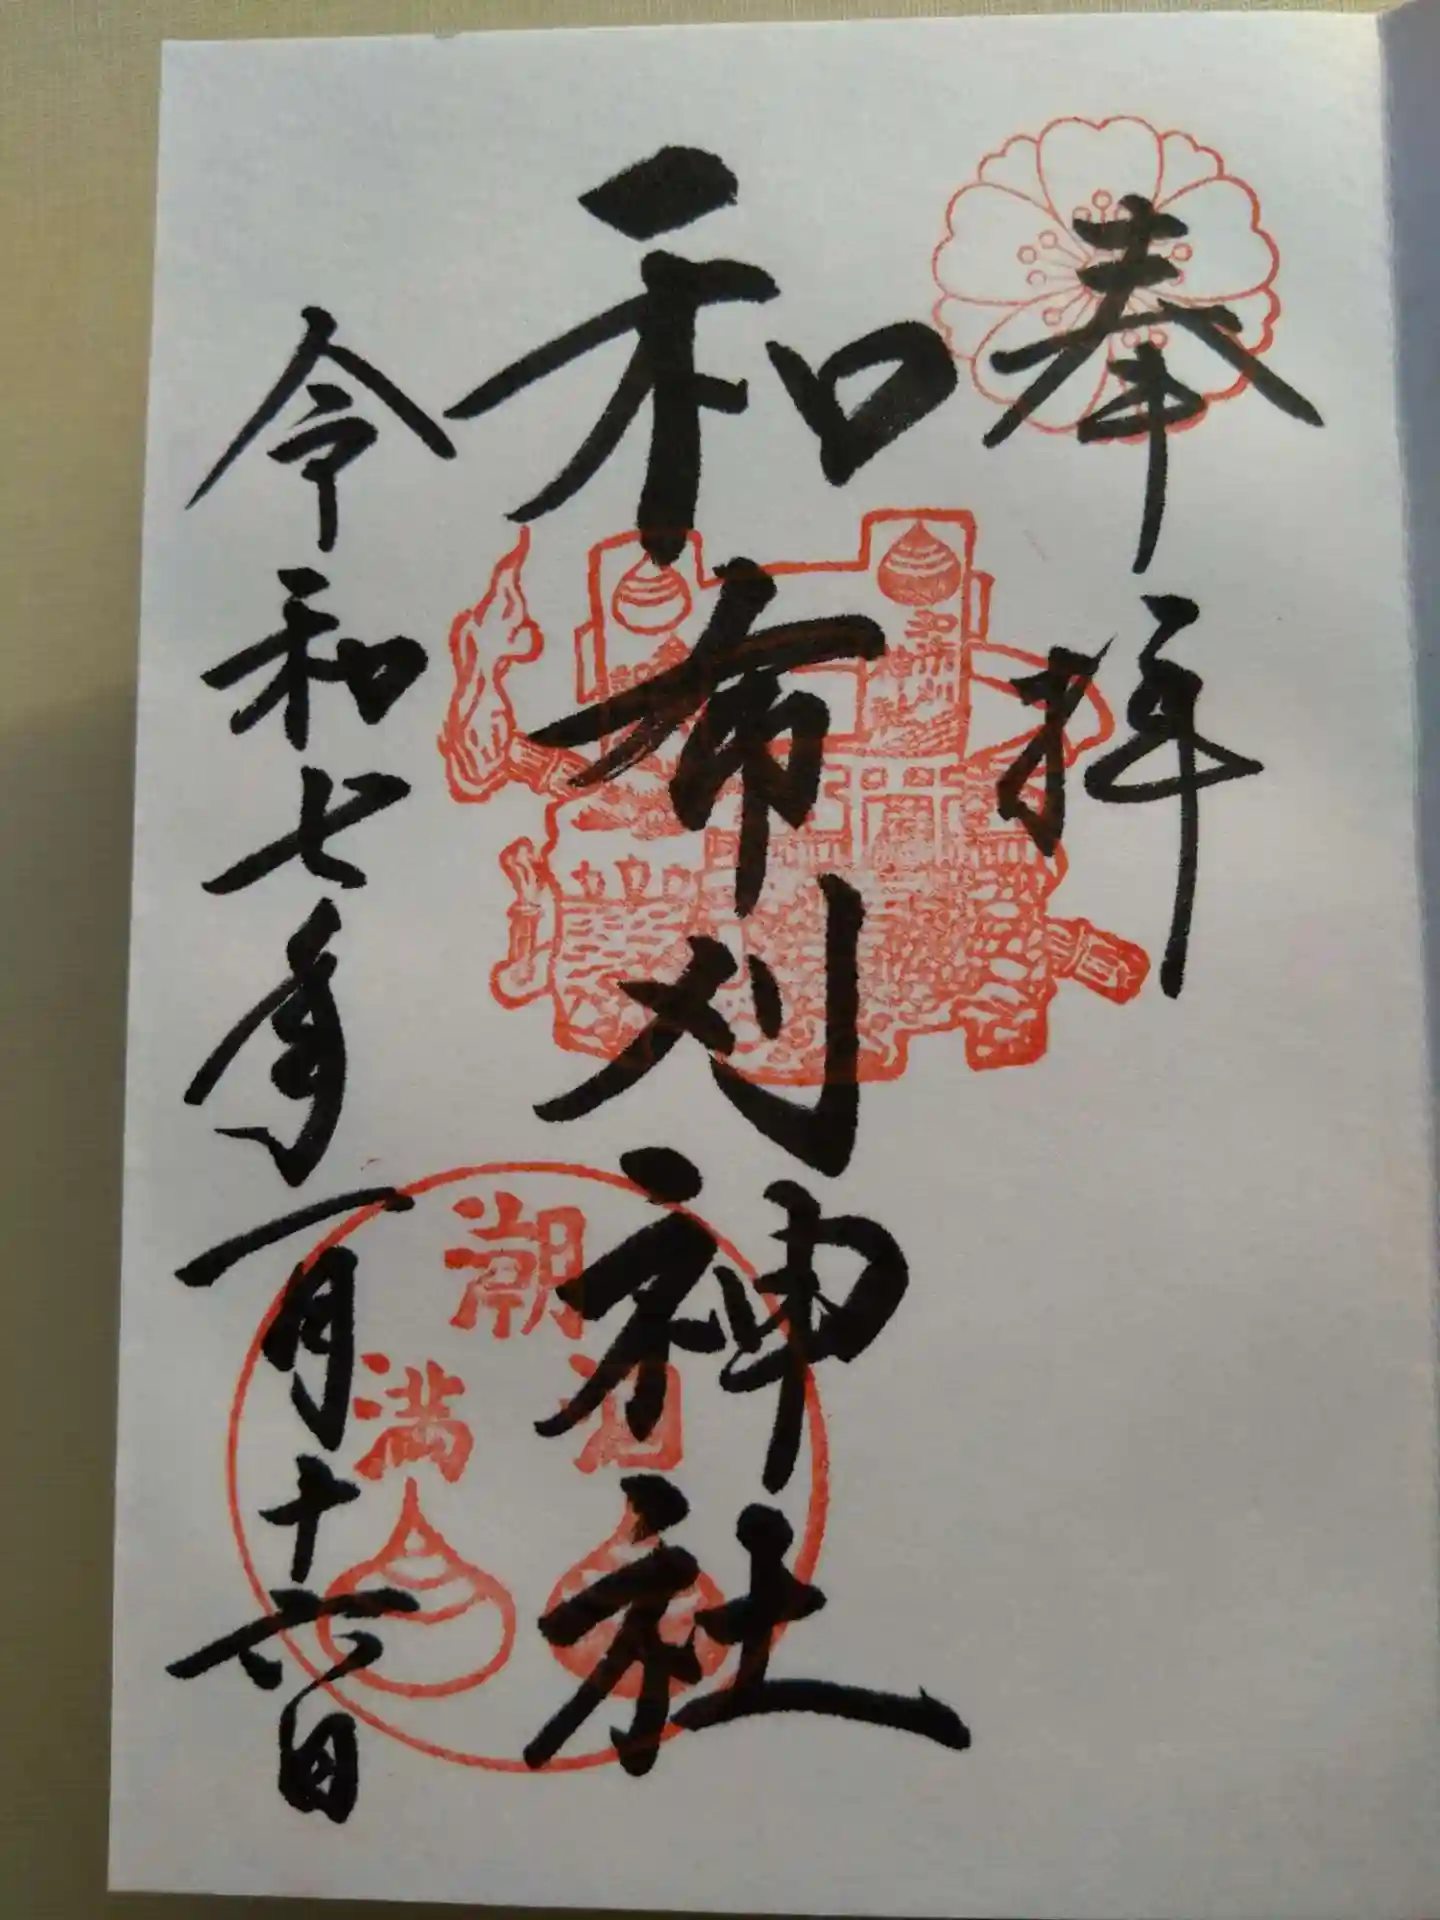 奉拝
和布刈神社
令和七年一月十六日
潮
満